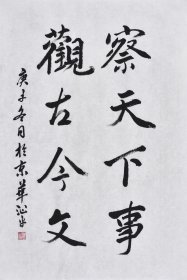 察天下事
觀古今文
庚子冬月於京華